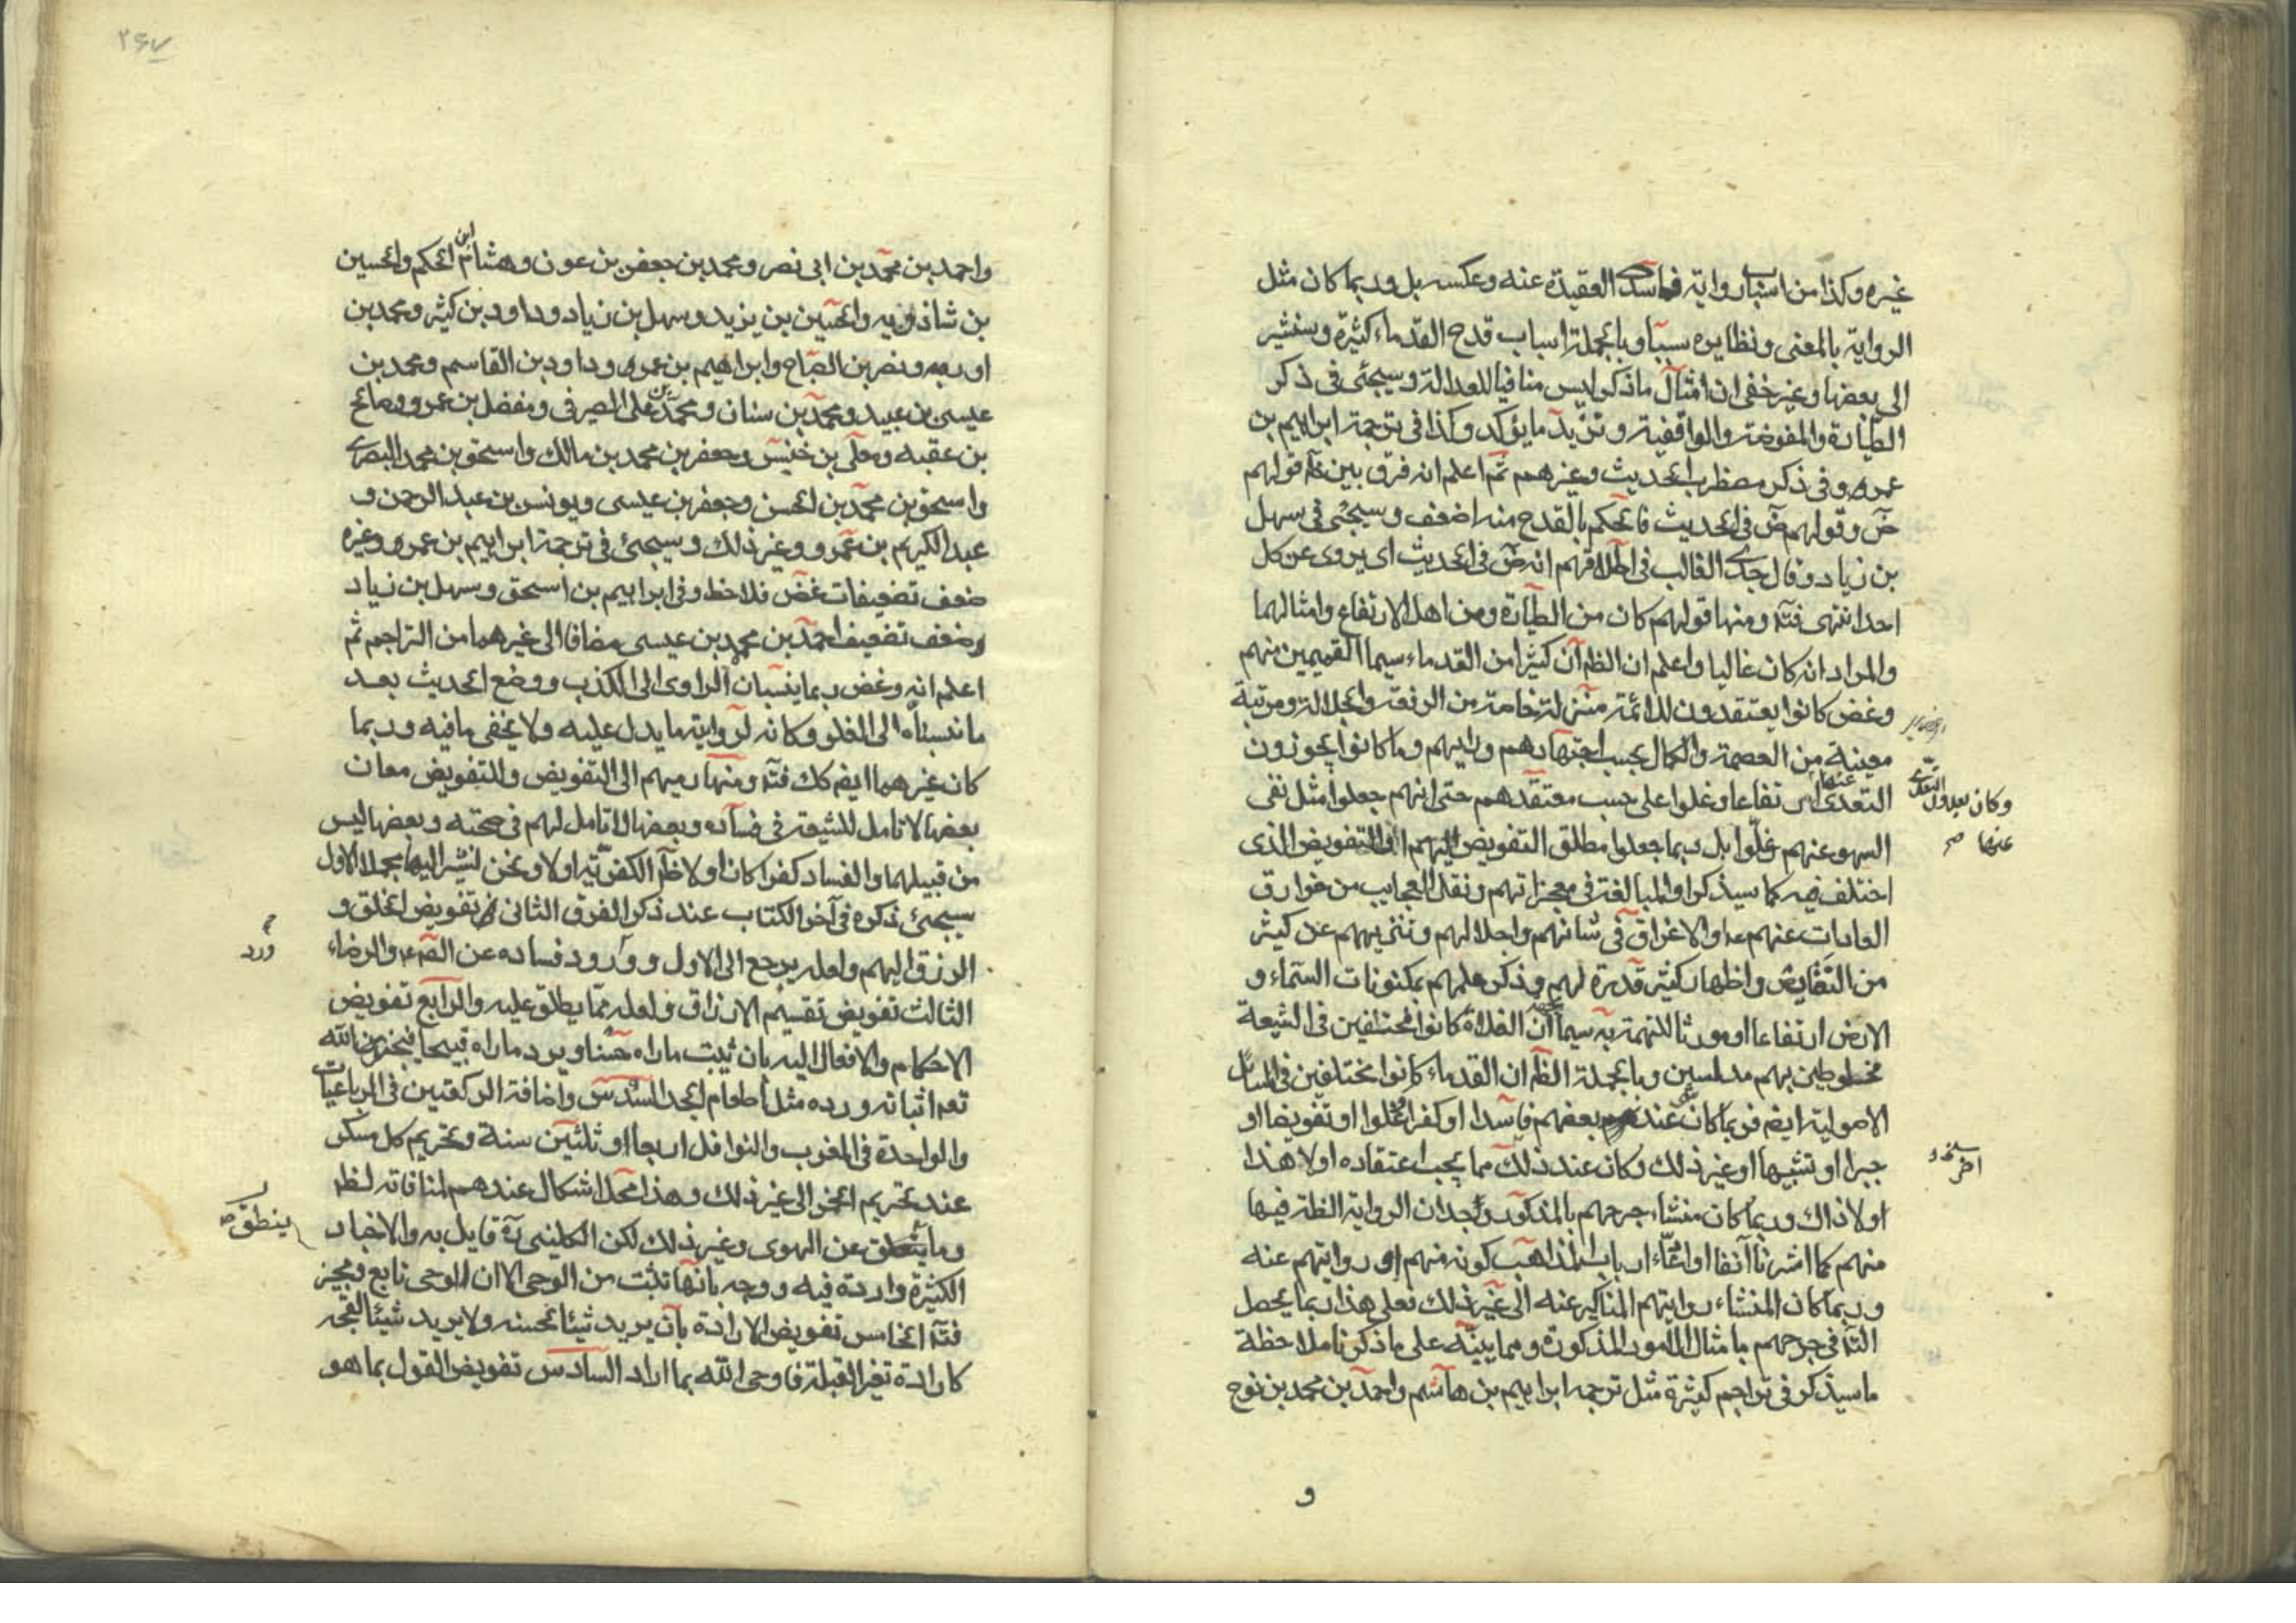 غيره وكذا من اسباب رواية فاسد العقيدة عنه وعكسه بل وربما كان مثل
الرواية بالمعنى ونظايره سببا وبالجملة اسباب قدح القدماء كثيرة وسنشير
الى بعضها وغير خفى ان امثال ماذكر ليس منافيا للعدالة وسيجئ فى ذكر
الطيارة والمفوضة والواقفية وتزيد مايؤكد وكذا فى ترجمة ابراهيم بن
عمرو وفى ذكر مضطرب الحديث وغيرهم ثم اعلم انه فرق بين ظم قولهم
ض وقولهم ض فى الحديث فالحكم بالقدح منه اضعف وسيجئ فى سهل
بن زياد وقال جدى الغالب فى اطلاقهم انه ض فى الحديث اى يروى عن كل
احد انتهى فتا ومنها قولهم كان من الطيارة ومن اهل الارتفاع وامثالهما
والمراد انه كان غاليا واعلم ان الظم ان كثيرا من القدماء سيما القميين منهم
وغض كانوا يعتقدون للائمة منزلة خاصة من الرفعة والجلالة ومرتبة
معينة من العصمة والكمال بحسب اجتهادهم ورايهم وما كانوا يجوزون
التعدى عنها
وكان يعدون التعدى عنها
ارتفاعا وغلوا على حسب معتقدهم حتى انهم جعلوا مثل نفى
السهو عنهم غلوا بل ربما جعلوا مطلق التفويض اليهم او التفويض الذى
اختلف فيه كما سيذكر او المبالغة فى معجزاتهم ونقل العجايب من خوارق
العادات عنهم ع او الاغراق فى شانهم واجلالهم وتنزيههم عن كثير
من النقايص واظهار كثير قدرة لهم وذكر علمهم بمكنونات السماء و
الارض ارتفاعا او مورثا للتهمة به سيما ان الغلاة كانوا مختفين فى الشيعة
مخلوطين بهم مدلسين وبالجملة الظم ان القدماء كانوا مختلفين فى المسائل
الاصولية ايضم فربما كان شئ عند بعضهم فاسدا او كفرا او غلوا او تفويضا او
جبرا او تشبيها او غير ذلك وكان عند ذلك مما يجب اعتقاده او لا هذا
آخر
او لا ذاك وربما كان منشاء جرحهم بالمذكور وجدان الرواية الظة فيها
منهم كما اشرنا آنفا او ادعاء ارباب المذاهب كونه منهم او روايتهم عنه
وربما كان المنشاء روايتهم المناكير عنه الى غير ذلك فعلى هذا ربما يحصل
التا فى جرحهم بامثال الامور المذكورة ومما ينبه على ماذكرنا ملاحظة
ماسيذكر فى تراجم كثيرة مثل ترجمه ابراهيم بن هاشم واحمد بن محمد بن نوح
و
٢٤٧
واحمد بن محمد بن ابى نصر ومحمد بن جعفر بن عون وهشام ابن الحكم والحسين
بن شاذويه والحسين بن يزيد وسهل بن زياد وداود بن كثير ومحمد بن
اورمه ونصر بن الصباح وابراهيم بن عمرو وداود بن القاسم ومحمد بن
عيسى بن عبيد ومحمد بن سنان ومحمد بن على الصيرفى ومفضل بن عمرو وصالح
بن عقبه ومعلى بن خنيس وجعفر بن محمد بن مالك واسحق بن محمد البصرى
واسحق بن محمد بن الحسن وجعفر بن عيسى ويونس بن عبد الرحمن و
عبد الكريم بن عمرو وغير ذلك وسيجئ فى ترجمة ابراهيم بن عمرو وغيره
ضعف تضعيفات غض فلاحظ وفى ابراهيم بن اسحق وسهل بن زياد
وضعف تضعيف احمد بن محمد بن عيسى مضافا الى غيرهما من التراجم ثم
اعلم انه وغض ربما ينسبان الراوى الى الكذب ووضع الحديث بعد
مانسبناه الى الغلو وكانه لروايته مايدل عليه ولا يخفى مافيه وربما
كان غيرهما ايضم كك فتا ومنها رميهم الى التفويض وللتفويض معان
بعضها لا تامل للشيعة فى فساده وبعضها لا تامل لهم فى صحته وبعضها ليس
من قبيلهما والفساد كفرا كان او لا ظم الكفرية او لا ونحن نشير اليها مجملا الاول
سيجئ ذكره فى آخر الكتاب عند ذكر الفرق الثانى تفويض الخلق و
الرزق اليهم ولعله يرجع الى الاول وورود فساده عن الصم ع والرضاء
ورد
الثالث تفويض تقسيم الارزاق ولعله مما يطلق عليه والرابع تفويض
الاحكام والافعال اليه بان يثبت ماراه حسنا ويرد ماراه قبيحا فيجيز الله
تعم اثباته ورده مثل اطعام الجد السدس واضافة الركعتين فى الرباعيات
والواحدة فى المغرب والنوافل اربعا او ثلثين سنة وتحريم كل مسكر
عند تحريم الخمر الى غير ذلك وهذا محل اشكال عندهم لمنافاته لظم
وما ينطق عن الهوى وغير ذلك لكن الكلينى ره قايل به والاخبار
ينطق
الكثيرة واردة فيه ووجه بانها تثبت من الوحى الا ان الوحى تابع ومجيز
فتا الخامس تفويض الارادة بان يريد شيئا لحسنه ولا يريد شيئا لقبحه
كارادة تغير القبلة فاوحى الله بما اراد السادس تفويض القول بما هو